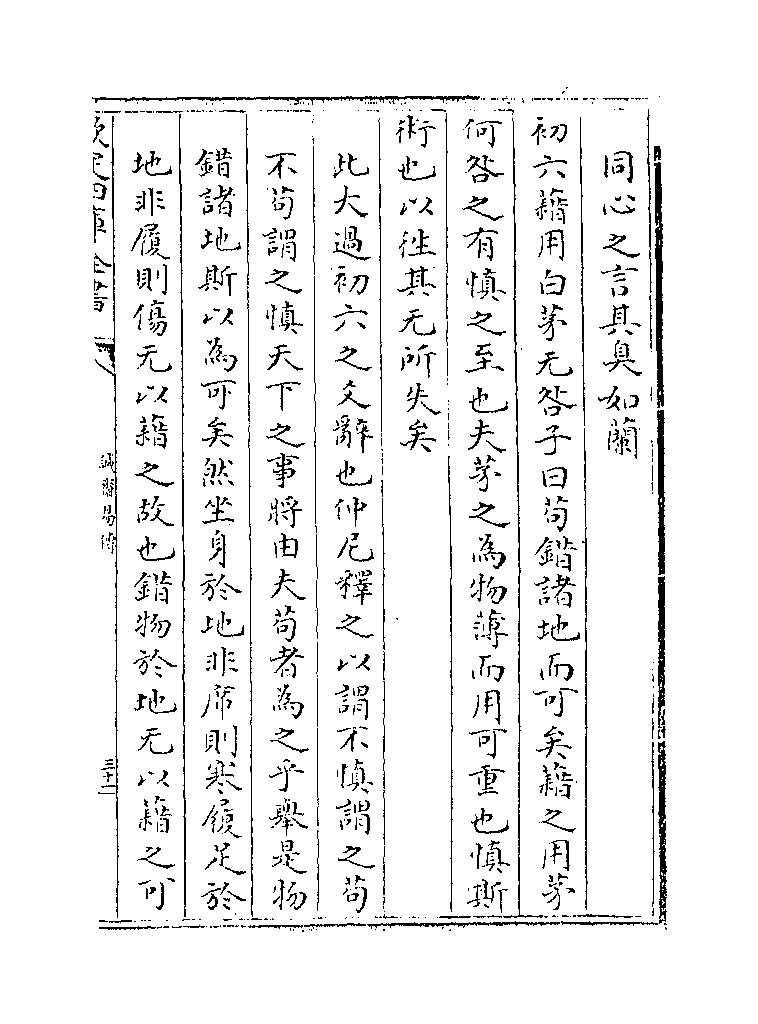 同心之言其臭如蘭
初六藉用白茅无咎子曰苟錯諸地而可矣藉之用茅
何咎之有慎之至也夫茅之為物薄而用可重也慎斯
術也以往其无所失矣
此大過初六之爻辭也仲尼釋之以謂不慎謂之苟
不苟謂之慎天下之事將由夫苟者為之乎舉是物
錯諸地斯以為可矣然坐身於地非席則寒履足於
地非履則傷无以藉之故也錯物於地无以藉之可
欽定四庫全書
誠齋易傳
三十一